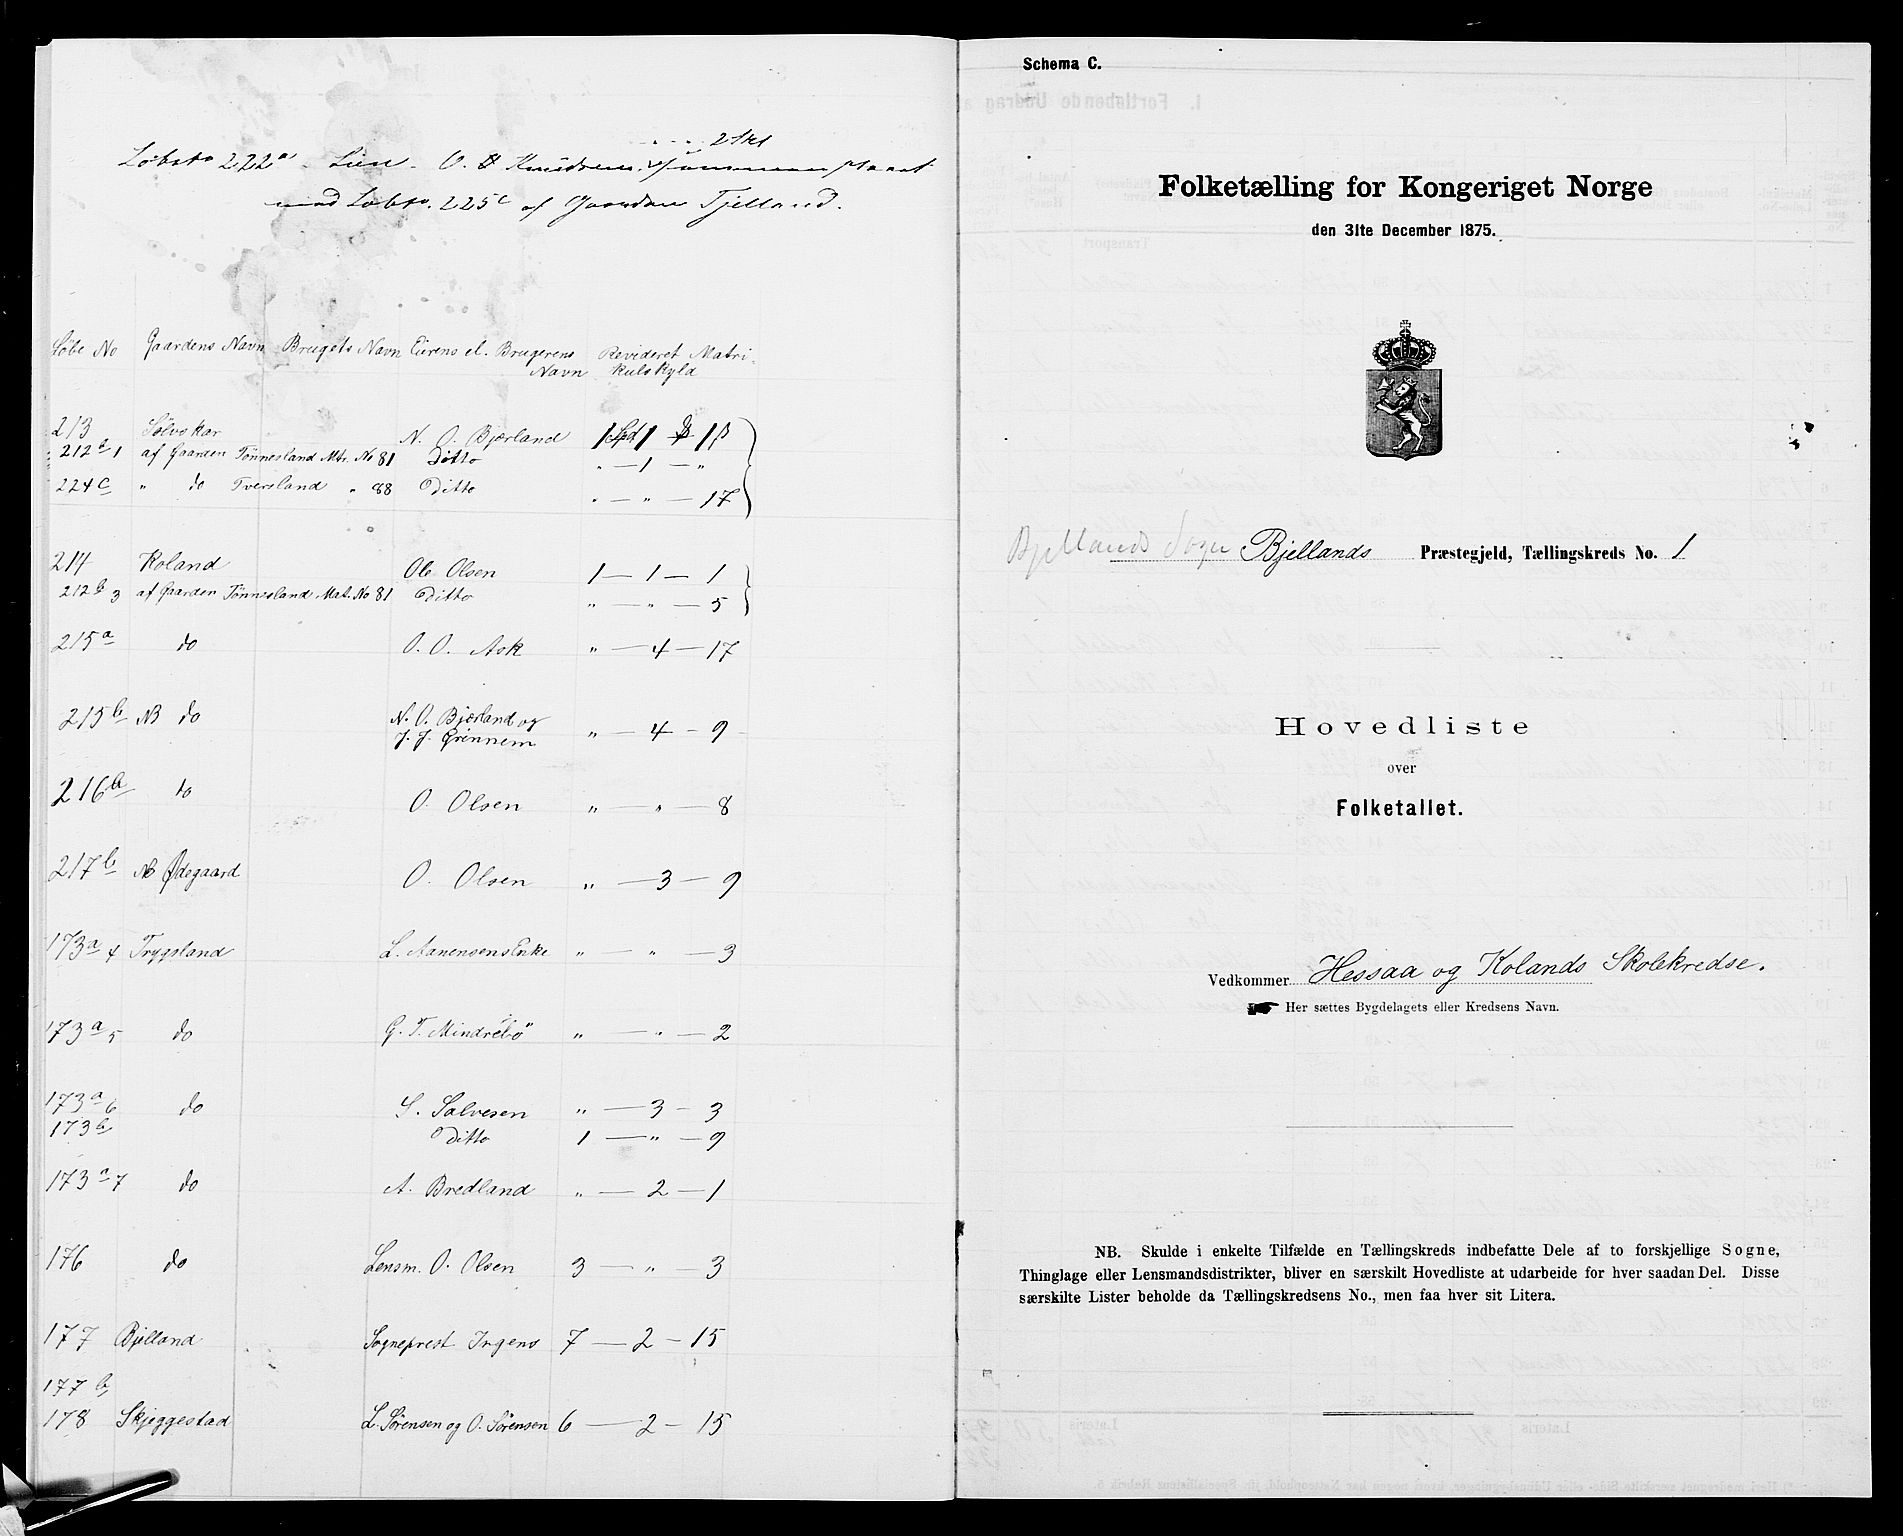 Löbeno 222a Lien O. Knudsen
med Löbeno. 225c af Gaarden Tjelland.
Löbe No Gaardens Navn Brugets Navn Eierens el. Brugerens Navn Revideret Matrikulskyld
213 Sölvskar N. O. Bjærland 1 Spd 1 ₰ 1 β
212b 1 af Gaarden Tönnesland Mtr. No 81 Ditto " — 1 — "
224c " do Tversland " 88 Ditto " — " — 17
214 Koland Ole Olsen 1 — 1 — 1
212b 3 af Gaarden Tönnesland Mat. No 81 Ditto " — " — 5
215a do O. O. Ask " — 4 — 17
215b NB do N. O. Bjærland og
J. J. Grinnem " — 4 — 9
216b do O. Olsen " — " — 8
217b NB Ødegaard O. Olsen " — 3 — 9
173a 4 Trygsland L. Aanensens Enke " — " — 3
173a 5 do G. T. Mindrebö " — " — 2
173a 6 do S. Salvesen " — 3 — 3
173b Ditto 1 — " — 9
173a 7 do A. Bredland " — 2 — 1
176 do Lensm. O. Olsen 3 — " — 3
177 Bjelland Sogneprest Irgens 7 — 2 — 15
177b
178 Skjeggestad L. Sörensen og O. Sörensen 6 — 2 — 15
Schema C.
Folketælling for Kongeriget Norge
den 31te December 1875.
Bjellands Sogn Bjellands Præstegjeld, Tællingskreds No. 1
Hovedliste
over
Folketallet.
Vedkommer Hessaa og Kolands Skolekredse.
Her sættes Bygdelagets eller Kredsens Navn.
NB. Skulde i enkelte Tilfælde en Tællingskreds indbefatte Dele af to forskjellige Sogne,
Thinglage eller Lensmandsdistrikter, bliver en særskilt Hovedliste at udarbeide for hver saadan Del. Disse
særskilte Lister beholde da Tællingskredsens No., men faa hver sit Litera.